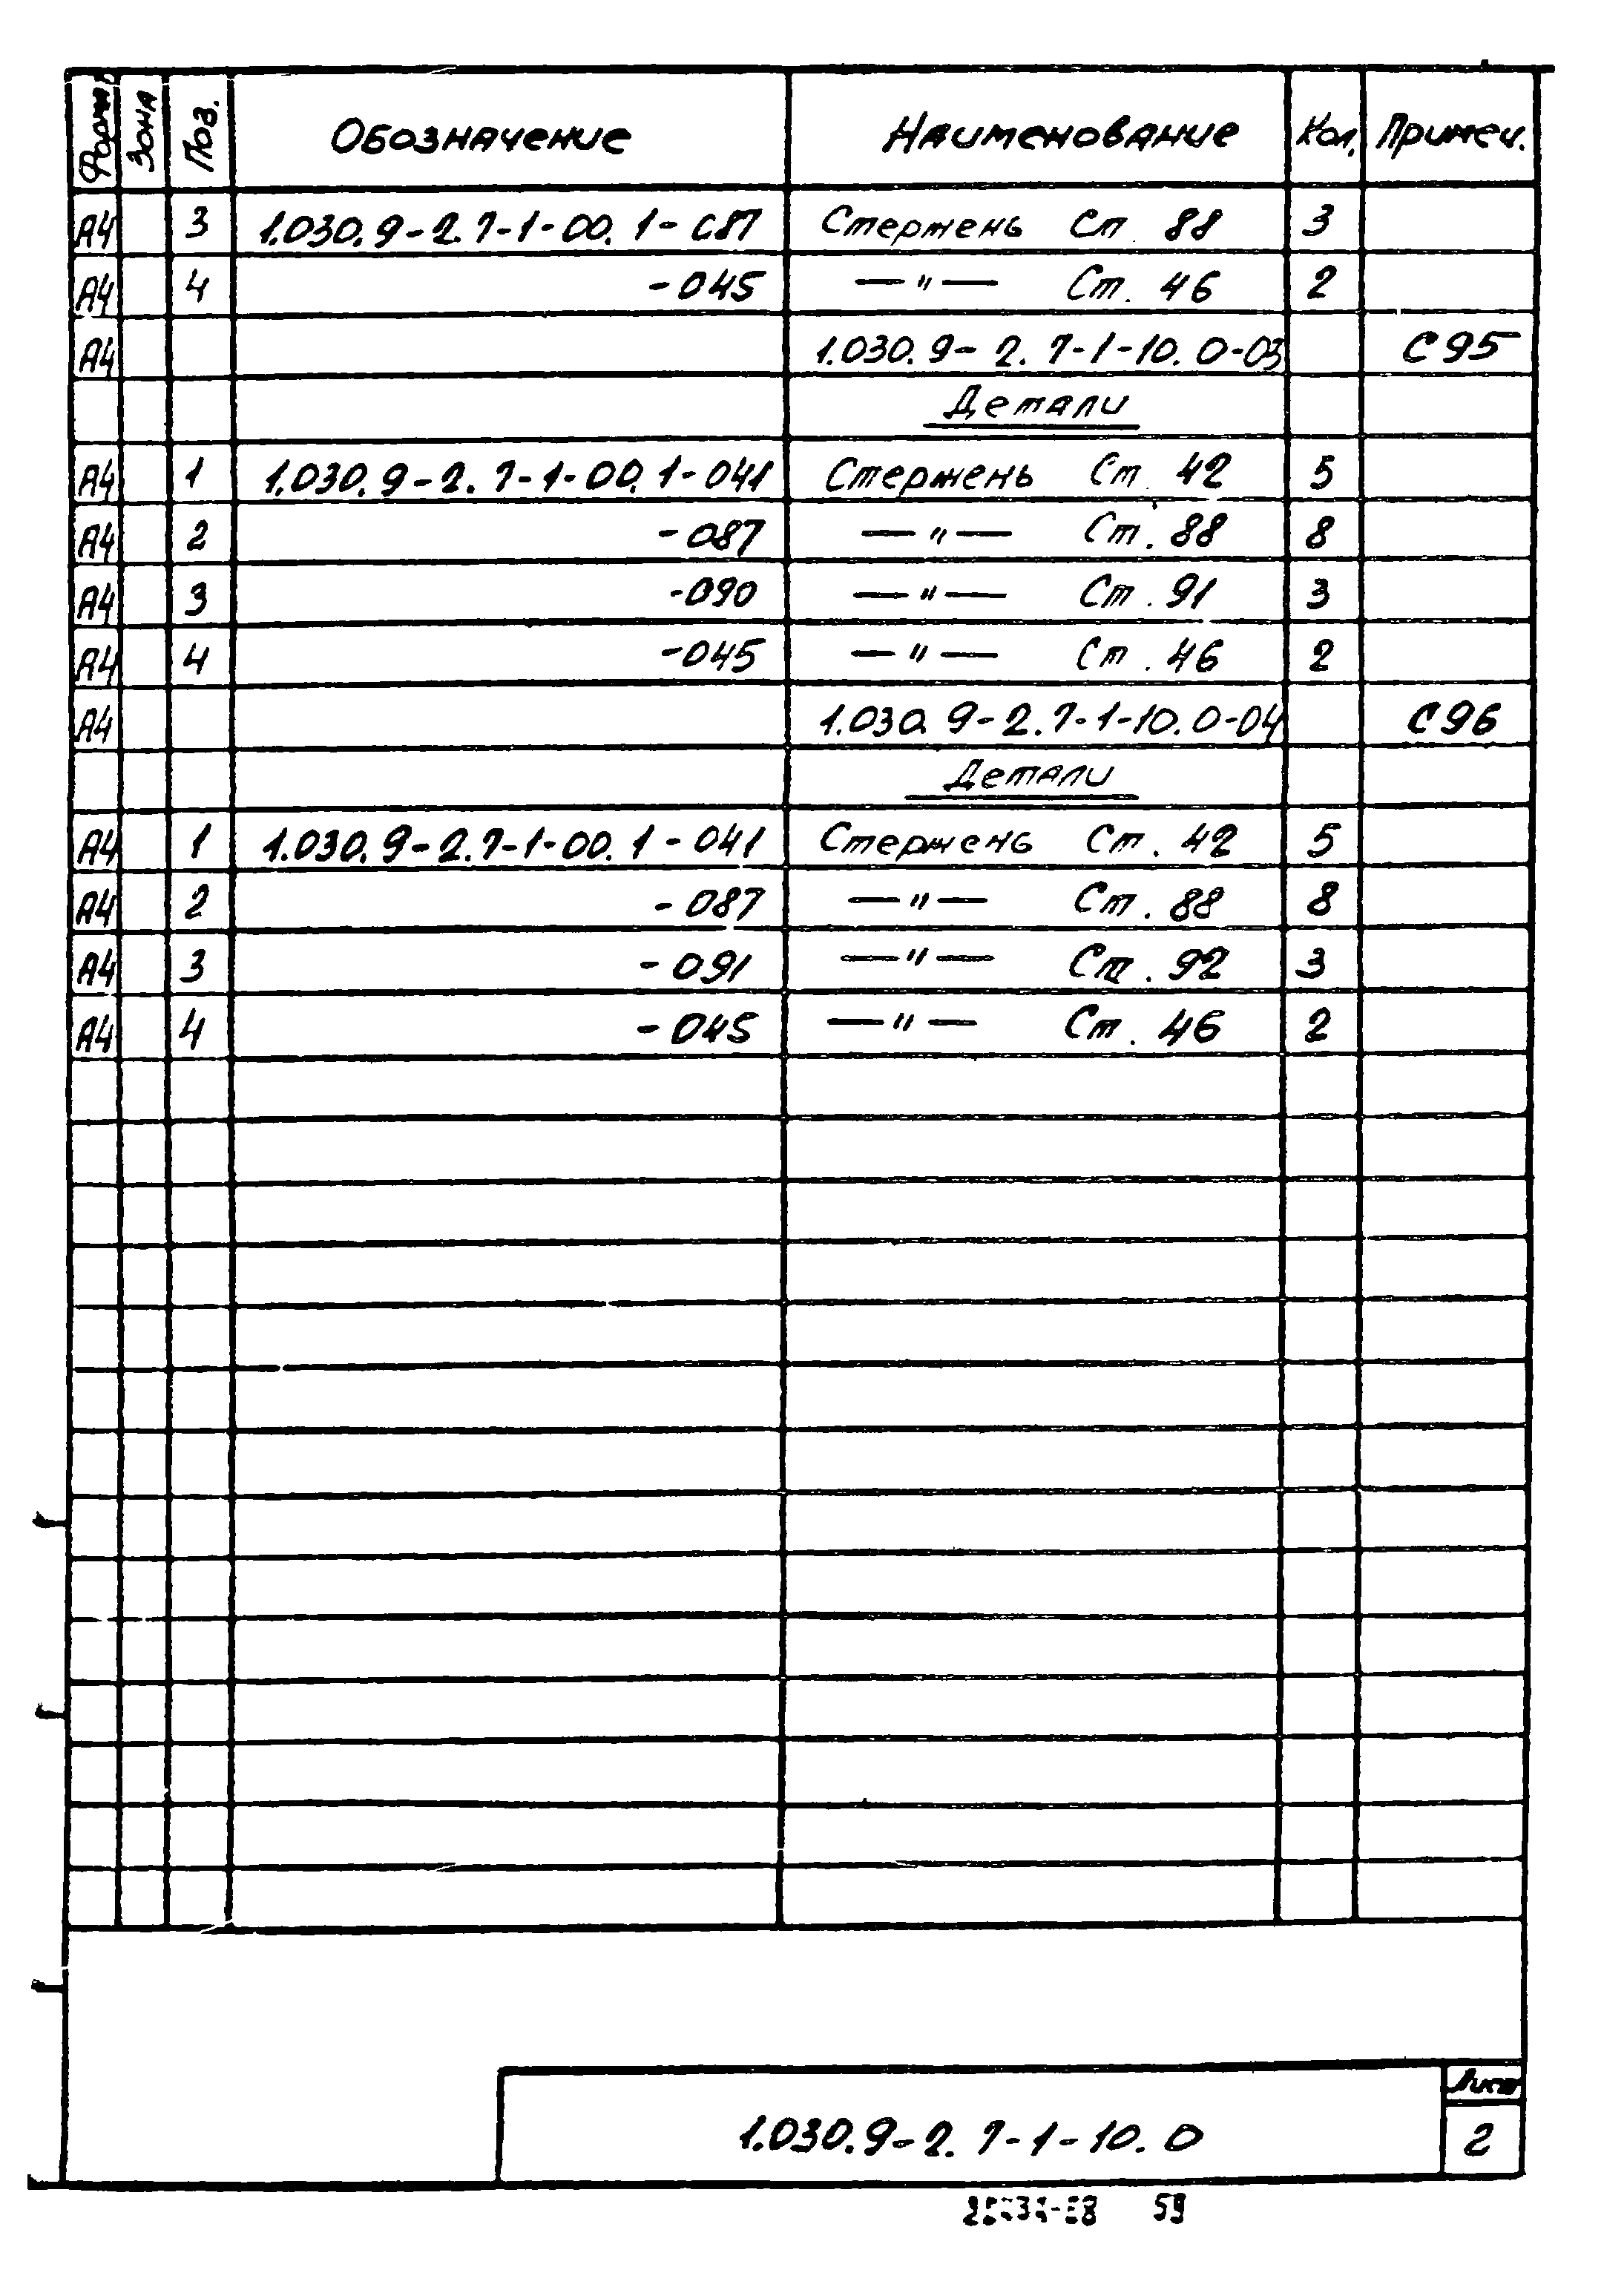 Формат Зона Поз. Обозначение Наименование Кол. Примеч.
А4 3 1.030.9-2.7-1-00.1-087 Стержень Ст 88 3
А4 4 -045 —"— Ст. 46 2
А4 1.030.9-2.7-1-10.0-03 С95
Детали
А4 1 1.030.9-2.7-1-00.1-041 Стержень Ст. 42 5
А4 2 -087 —"— Ст. 88 8
А4 3 -090 —"— Ст. 91 3
А4 4 -045 —"— Ст. 46 2
А4 1.030.9-2.7-1-10.0-04 С96
Детали
А4 1 1.030.9-2.7-1-00.1-041 Стержень Ст. 42 5
А4 2 -087 —"— Ст. 88 8
А4 3 -091 —"— Ст. 92 3
А4 4 -045 —"— Ст. 46 2
Лист
1.030.9-2.7-1-10.0 2
59